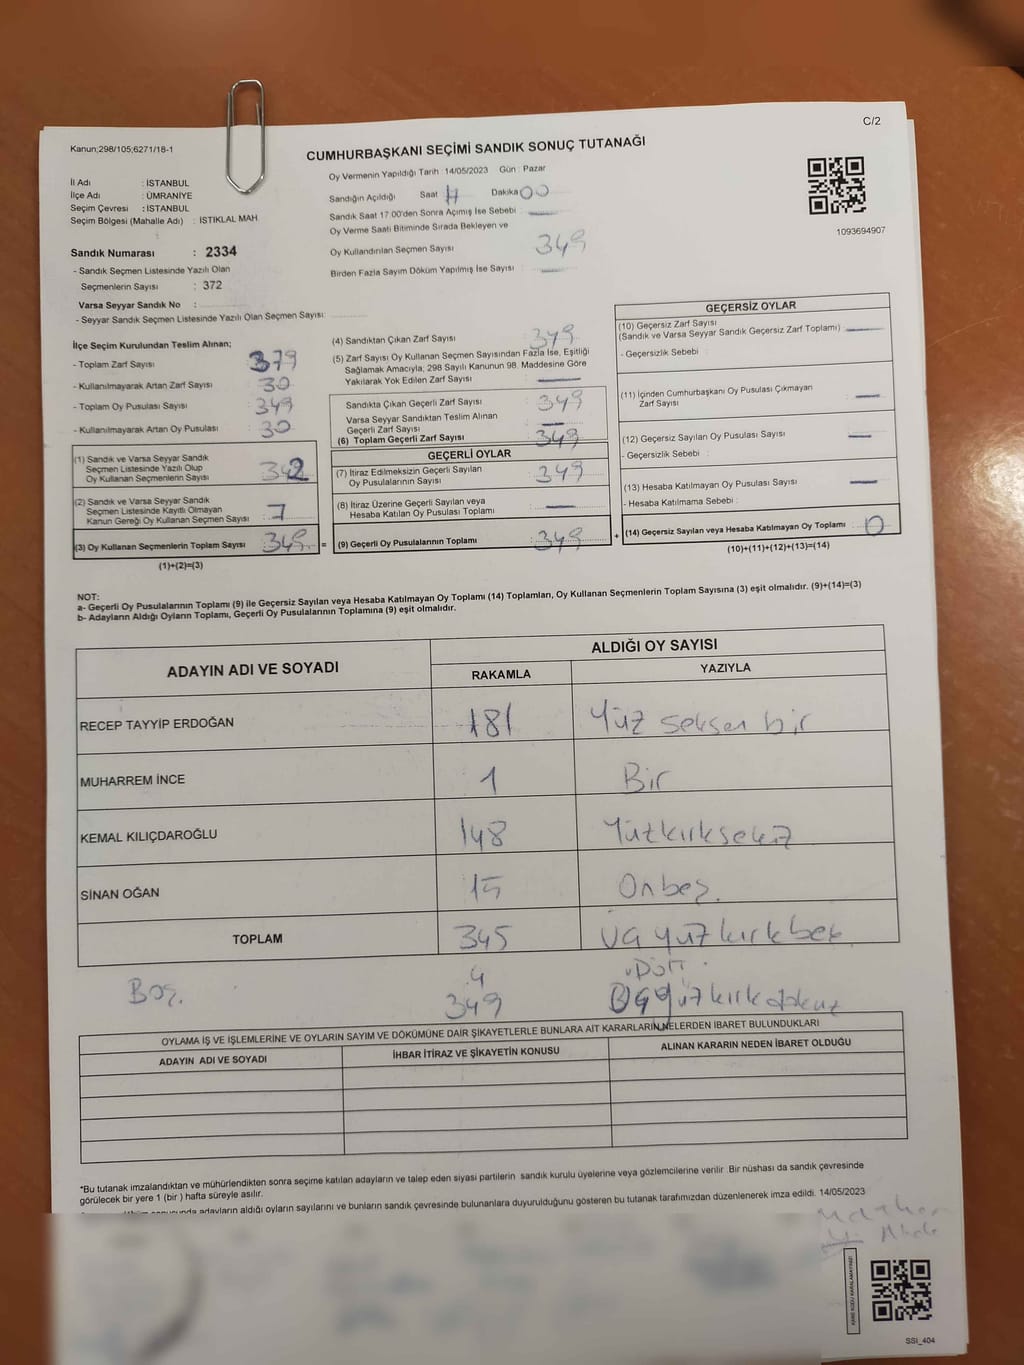 C/2
Kanun;298/105;6271/18-1
CUMHURBAŞKANI SEÇİMİ SANDIK SONUÇ TUTANAĞI
Oy Vermenin Yapıldığı Tarih : 14/05/2023 Gün : Pazar
İl Adı : İSTANBUL
İlçe Adı : ÜMRANİYE
Seçim Çevresi : İSTANBUL
Seçim Bölgesi (Mahalle Adı) : İSTİKLAL MAH
Sandığın Açıldığı Saat Dakika 00
Sandık Saat 17.00'den Sonra Açımış İse Sebebi : —
Oy Verme Saati Bitiminde Sırada Bekleyen ve
Oy Kullandırılan Seçmen Sayısı : 349
Birden Fazla Sayım Döküm Yapılmış İse Sayısı : —
1093694907
Sandık Numarası : 2334
- Sandık Seçmen Listesinde Yazılı Olan
Seçmenlerin Sayısı : 372
Varsa Seyyar Sandık No :
- Seyyar Sandık Seçmen Listesinde Yazılı Olan Seçmen Sayısı:
İlçe Seçim Kurulundan Teslim Alınan;
- Toplam Zarf Sayısı : 379
- Kullanılmayarak Artan Zarf Sayısı : 30
- Toplam Oy Pusulası Sayısı : 349
- Kullanılmayarak Artan Oy Pusulası : 30
(1) Sandık ve Varsa Seyyar Sandık
Seçmen Listesinde Yazılı Olup
Oy Kullanan Seçmenlerin Sayısı : 342
(2) Sandık ve Varsa Seyyar Sandık
Seçmen Listesinde Kayıtlı Olmayan
Kanun Gereği Oy Kullanan Seçmen Sayısı : 7
(3) Oy Kullanan Seçmenlerin Toplam Sayısı : 349 =
(1)+(2)=(3)
(4) Sandıktan Çıkan Zarf Sayısı : 349
(5) Zarf Sayısı Oy Kullanan Seçmen Sayısından Fazla İse, Eşitliği
Sağlamak Amacıyla; 298 Sayılı Kanunun 98. Maddesine Göre
Yakılarak Yok Edilen Zarf Sayısı : —
Sandıkta Çıkan Geçerli Zarf Sayısı : 349
Varsa Seyyar Sandıktan Teslim Alınan
Geçerli Zarf Sayısı : —
(6) Toplam Geçerli Zarf Sayısı : 349
GEÇERLİ OYLAR
(7) İtiraz Edilmeksizin Geçerli Sayılan
Oy Pusulalarının Sayısı : 349
(8) İtiraz Üzerine Geçerli Sayılan veya
Hesaba Katılan Oy Pusulası Toplamı : —
(9) Geçerli Oy Pusulalarının Toplamı : 349 +
GEÇERSİZ OYLAR
(10) Geçersiz Zarf Sayısı
(Sandık ve Varsa Seyyar Sandık Geçersiz Zarf Toplamı) : —
- Geçersizlik Sebebi :
(11) İçinden Cumhurbaşkanı Oy Pusulası Çıkmayan
Zarf Sayısı : —
(12) Geçersiz Sayılan Oy Pusulası Sayısı : —
- Geçersizlik Sebebi :
(13) Hesaba Katılmayan Oy Pusulası Sayısı : —
- Hesaba Katılmama Sebebi :
(14) Geçersiz Sayılan veya Hesaba Katılmayan Oy Toplamı : 0
(10)+(11)+(12)+(13)=(14)
NOT:
a- Geçerli Oy Pusulalarının Toplamı (9) ile Geçersiz Sayılan veya Hesaba Katılmayan Oy Toplamı (14) Toplamları, Oy Kullanan Seçmenlerin Toplam Sayısına (3) eşit olmalıdır. (9)+(14)=(3)
b- Adayların Aldığı Oyların Toplamı, Geçerli Oy Pusulalarının Toplamına (9) eşit olmalıdır.
ADAYIN ADI VE SOYADI
ALDIĞI OY SAYISI
RAKAMLA YAZIYLA
RECEP TAYYİP ERDOĞAN 181 Yüz seksen bir
MUHARREM İNCE 1 Bir
KEMAL KILIÇDAROĞLU 148 Yüzkırksekiz
SİNAN OĞAN 15 Onbeş.
TOPLAM 345 üç yüz kırk beş
Boş. 4 Dört.
349 yüz kırk dokuz
OYLAMA İŞ VE İŞLEMLERİNE VE OYLARIN SAYIM VE DÖKÜMÜNE DAİR ŞİKAYETLERLE BUNLARA AİT KARARLARIN NELERDEN İBARET BULUNDUKLARI
ADAYIN ADI VE SOYADI İHBAR İTİRAZ VE ŞİKAYETİN KONUSU ALINAN KARARIN NEDEN İBARET OLDUĞU
*Bu tutanak imzalandıktan ve mühürlendikten sonra seçime katılan adayların ve talep eden siyasi partilerin sandık kurulu üyelerine veya gözlemcilerine verilir. Bir nüshası da sandık çevresinde
görülecek bir yere 1 (bir) hafta süreyle asılır.
adayların aldığı oyların sayılarını ve bunların sandık çevresinde bulunanlara duyurulduğunu gösteren bu tutanak tarafımızdan düzenlenerek imza edildi. 14/05/2023
KARE KODU KARALAMAYINIZ!
SSI_404